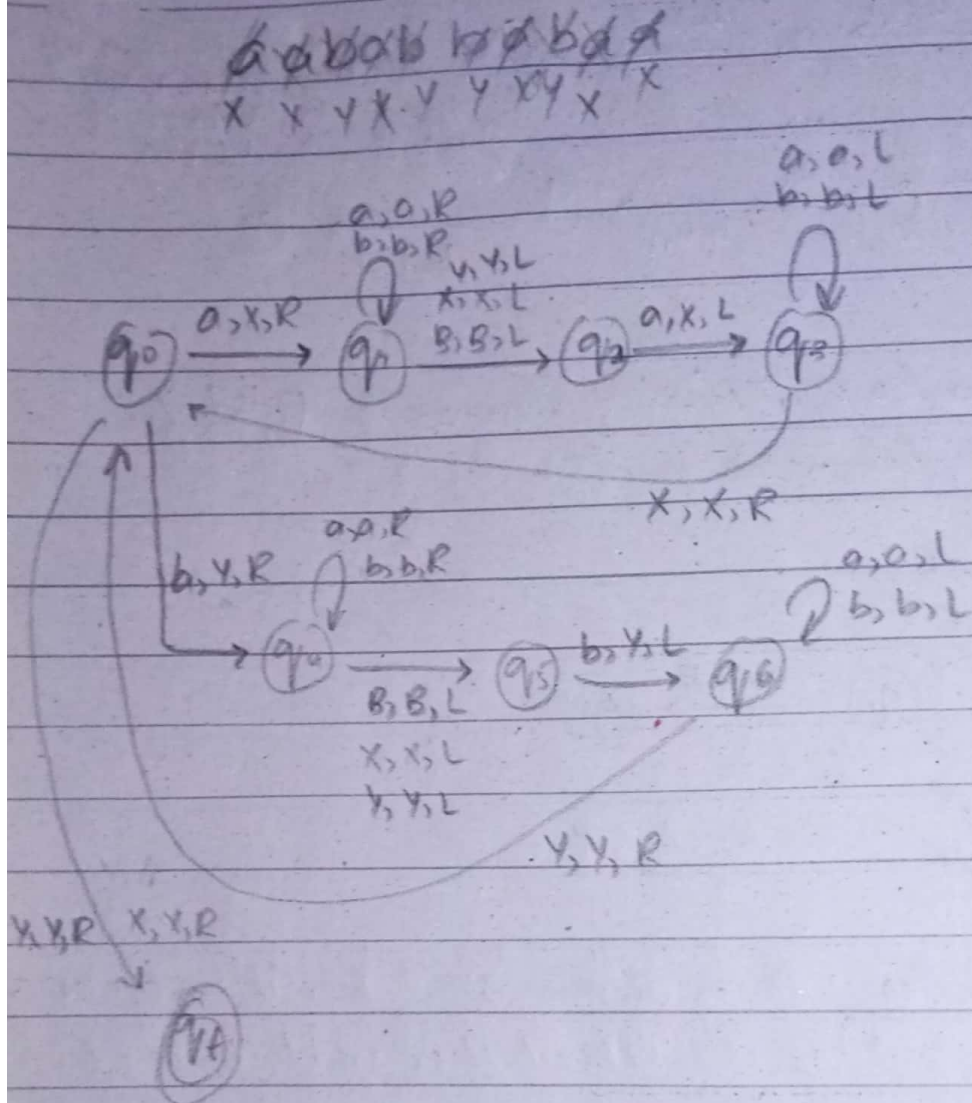 aabab babaa
X X Y X Y Y X Y X X
a, a, L
b, b, L
a, a, R
b, b, R
Y, Y, L
X, X, L
a, X, R
B, B, L
a, X, L
q0 q1 q2 q3
X, X, R
a, a, R
b, b, R
b, Y, R
a, a, L
b, b, L
q4 q5 b, Y, L q6
B, B, L
X, X, L
Y, Y, L
Y, Y, R
Y, Y, R X, X, R